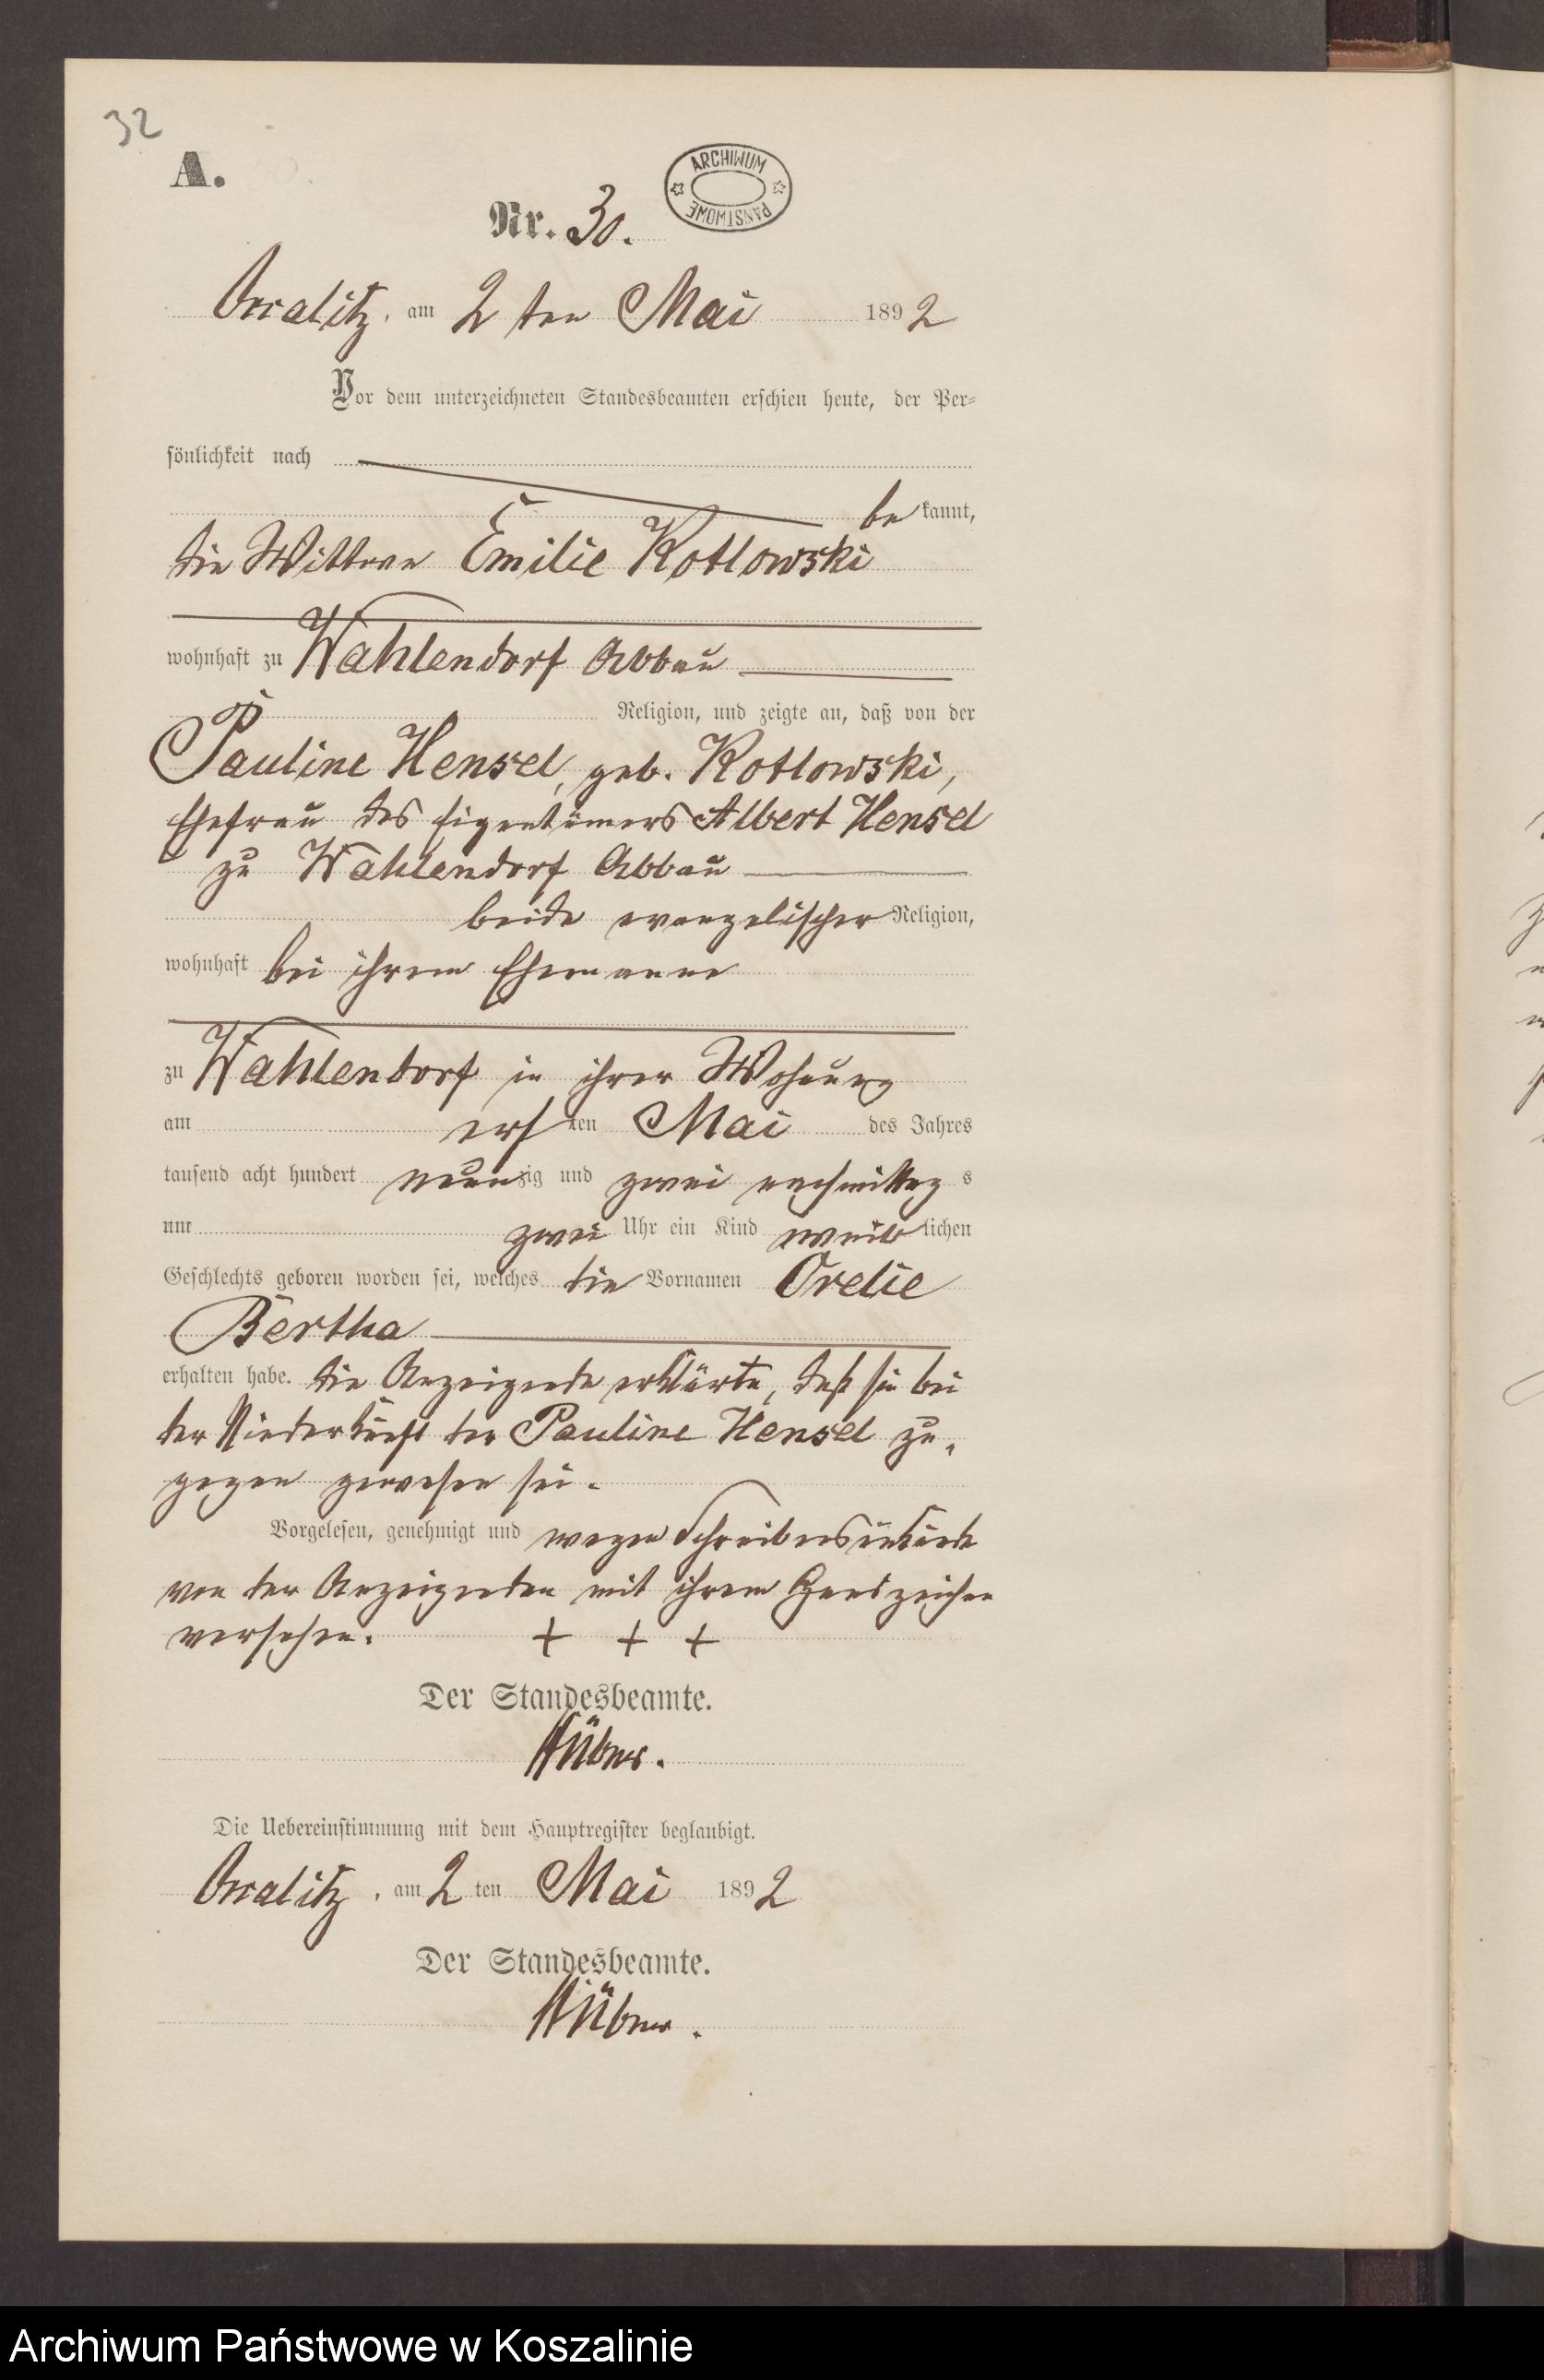 32
A.
ARCHIWUM PAŃSTWOWE
Nr. 30.
am 2 ten Mai 1892
Vor dem unterzeichneten Standesbeamten erschien heute, der Per-
sönlichkeit nach
be kannt,
die Wittwe Emilie Kotlowski
wohnhaft zu Wahlendorf Abbau
Religion, und zeigte an, daß von der
Pauline Hensel, geb. Kotlowski,
Ehefrau des Eigentümers Albert Hensel
zu Wahlendorf Abbau
beide evangelischer Religion,
wohnhaft bei ihrem Ehemanne
zu Wahlendorf in ihrer Wohnung
am ersten Mai des Jahres
tausend acht hundert neunzig und zwei nachmittags
um zwei Uhr ein Kind weiblichen
Geschlechts geboren worden sei, welches die Vornamen Orelie
Bertha
erhalten habe. die Anzeigende erklärte, daß sie bei
der Niederkunft der Pauline Hensel zu-
gegen gewesen sei.
Vorgelesen, genehmigt und wegen Schreibensunkunde
von der Anzeigenden mit ihrem Handzeichen
versehen. + + +
Der Standesbeamte.
Die Uebereinstimmung mit dem Hauptregister beglaubigt.
am 2 ten Mai 1892
Der Standesbeamte.
Archiwum Państwowe w Koszalinie